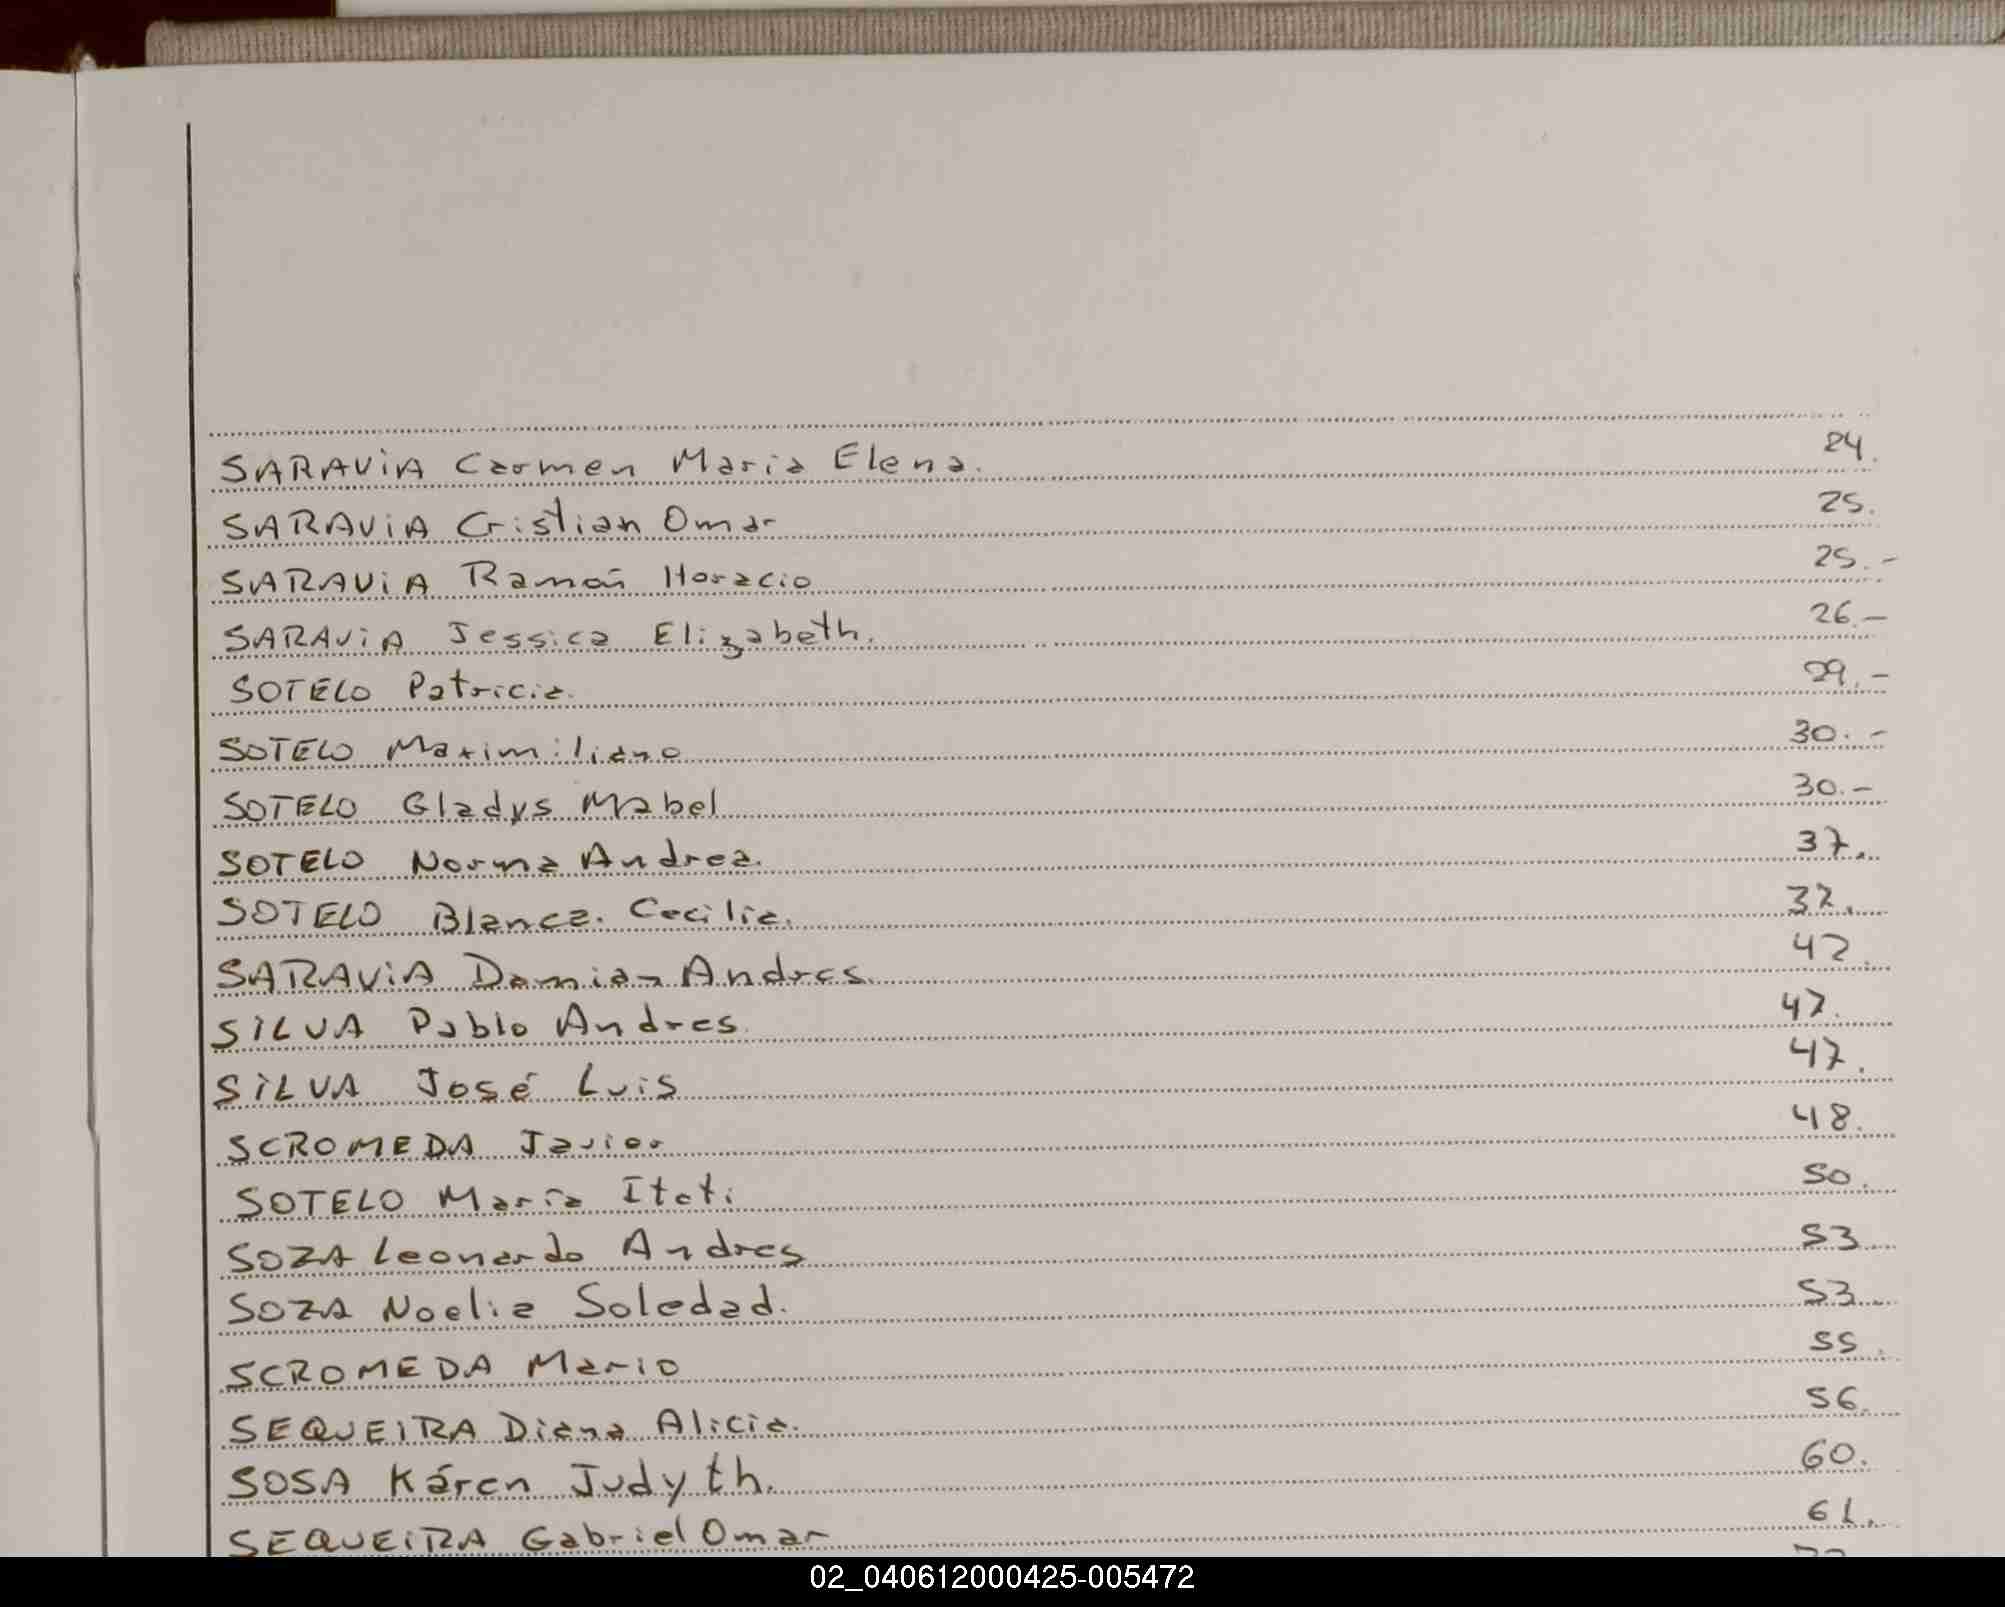 SARAViA Carmen Maria Elena. 24.
SARAViA Cristian Omar 25.
SARAViA Ramón Horacio 25.-
SARAViA Jessica Elizabeth. 26.-
SOTELO Patricia. 29.-
SOTELO Maximiliano 30.-
SOTELO Gladys Mabel 30.-
SOTELO Norma Andrea. 37.
SOTELO Blanca. Cecilia. 37.
SARAViA Damian Andres. 42.
SiLVA Pablo Andres. 47.
SiLVA José Luis 47.
SCROMEDA Javier 48.
SOTELO María Itati 50.
SOZA Leonardo Andres 53.
SOZA Noelia Soledad. 53.
SCROMEDA Mario 55.
SEQUEiRA Diana Alicia. 56.
SOSA Káren Judyth. 60.
SEQUEiRA Gabriel Omar 61.
02_040612000425-005472